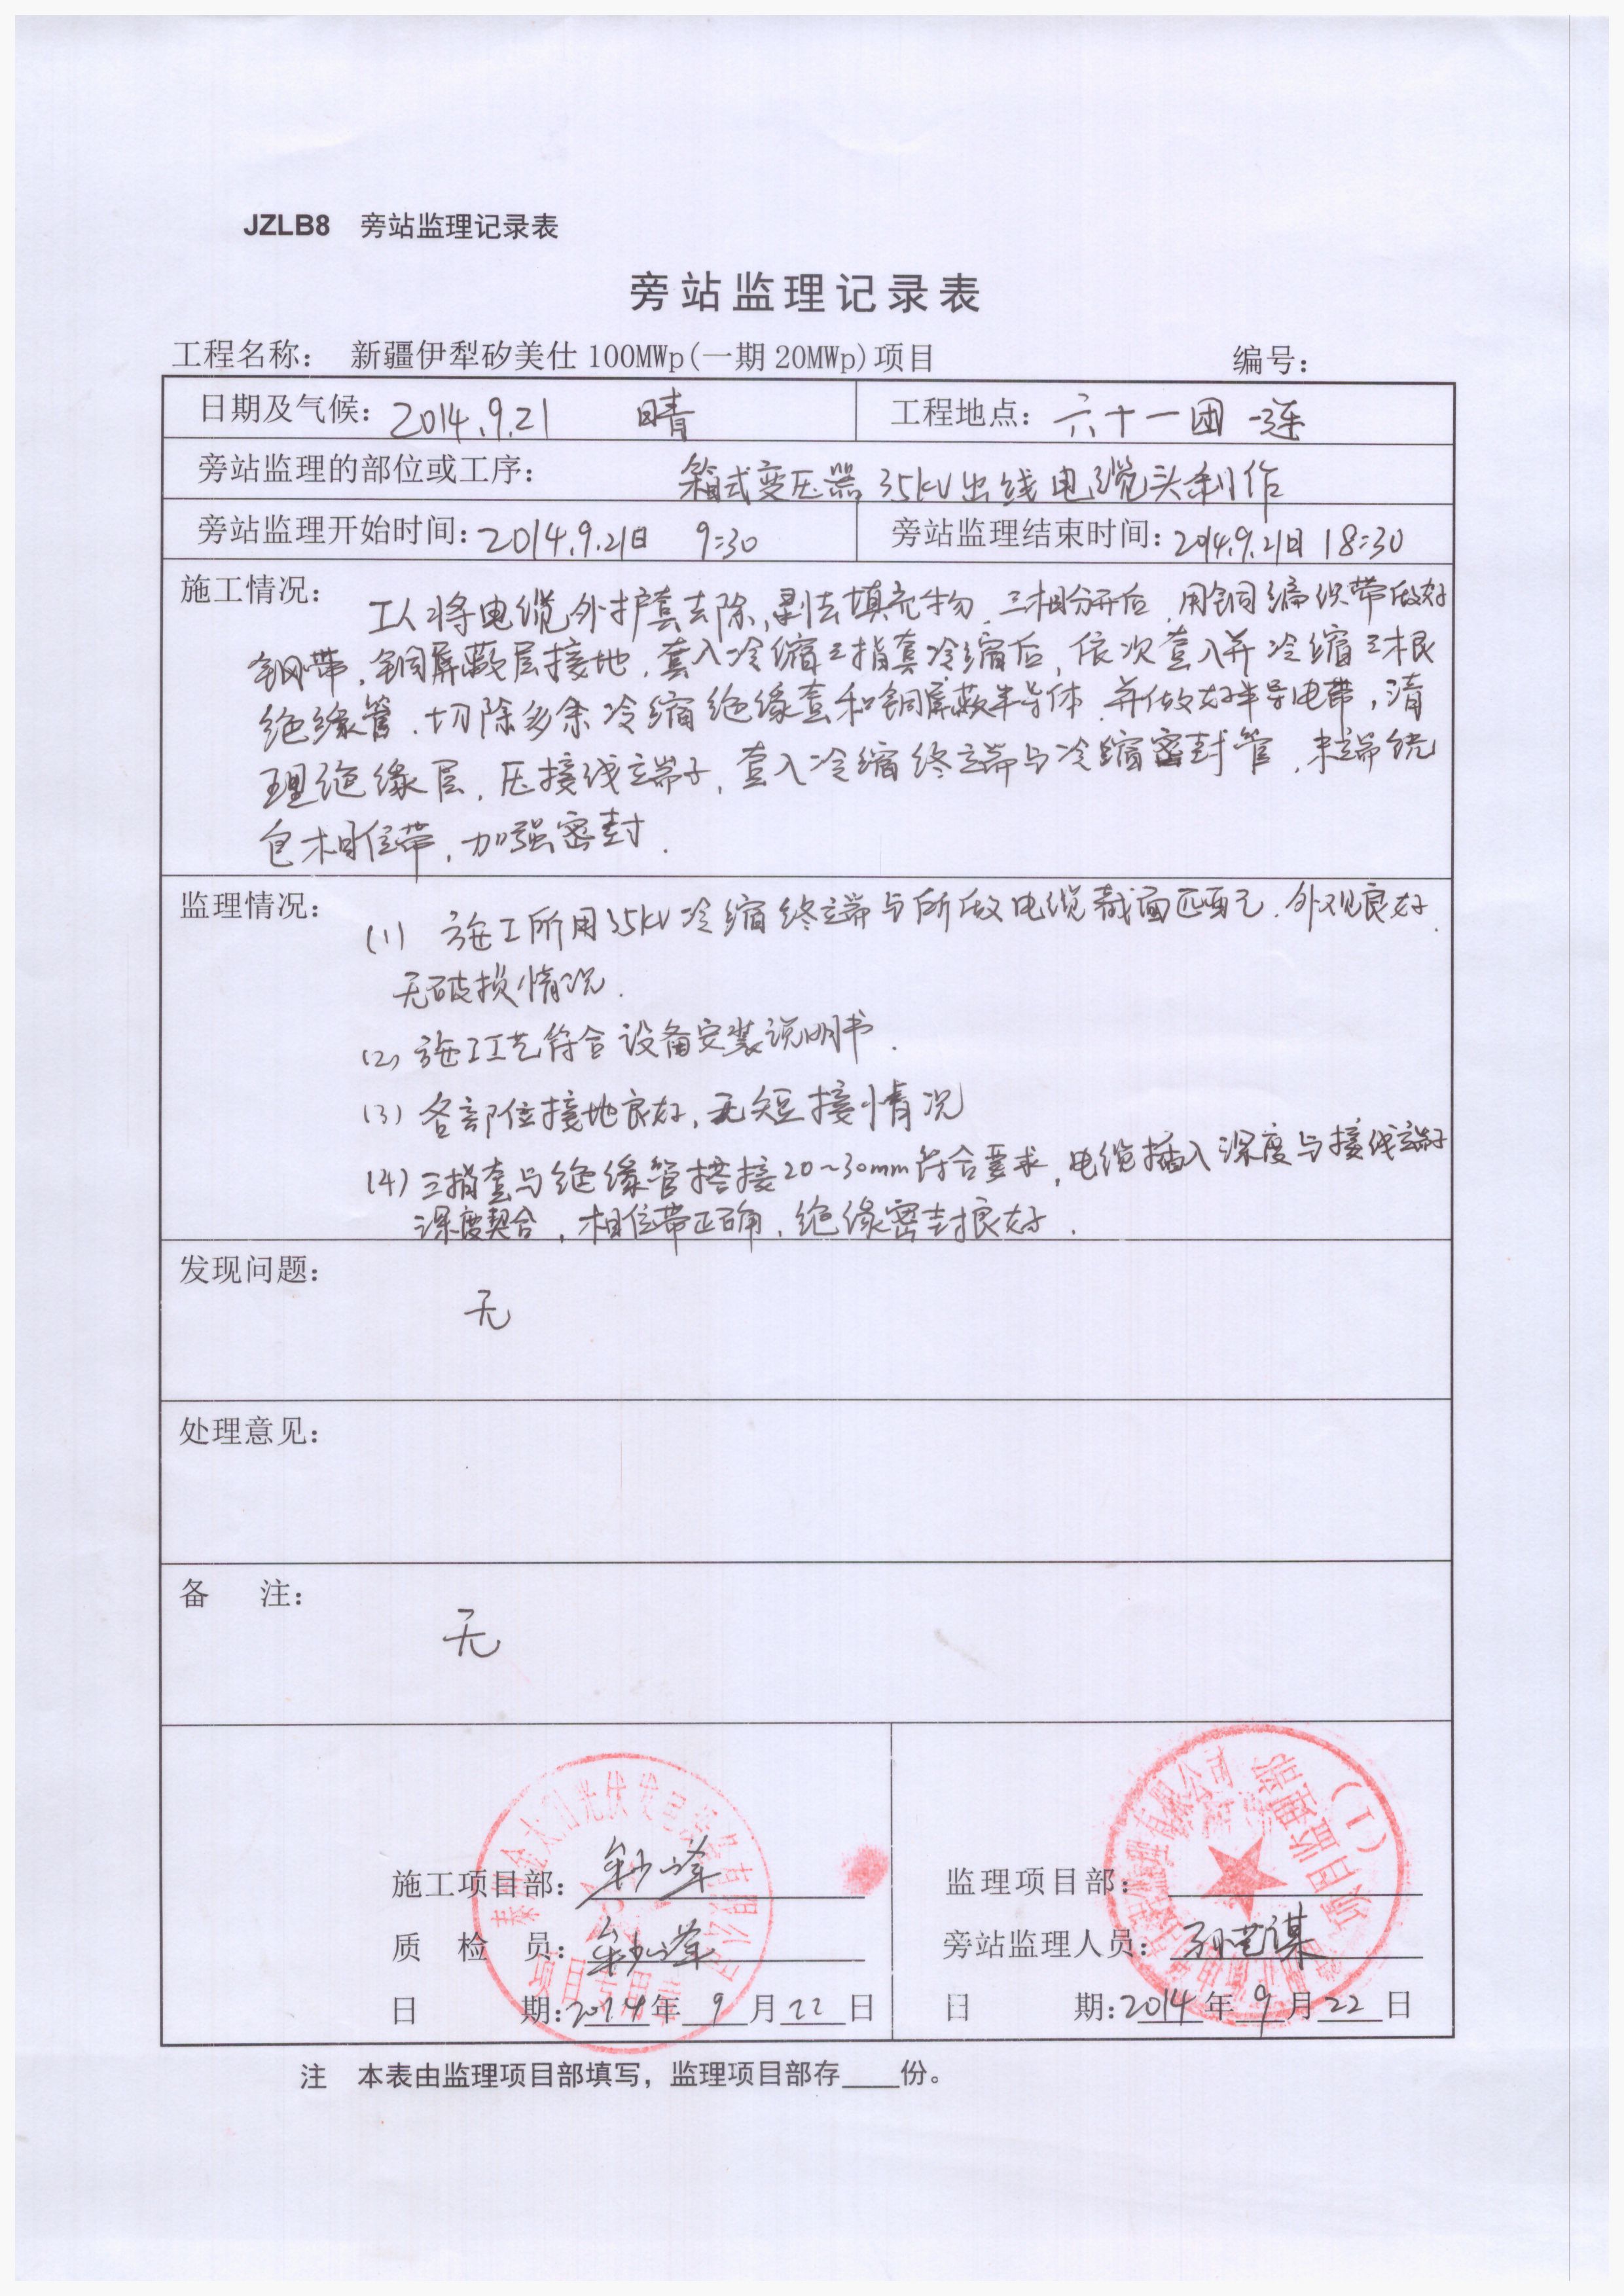 JZLB8 旁站监理记录表
旁站监理记录表
工程名称: 新疆伊犁矽美仕100MWp(一期20MWp)项目 编号:
日期及气候: 2014.9.21 晴 工程地点: 六十一团 一连
旁站监理的部位或工序: 箱式变压器35kV出线电缆头制作
旁站监理开始时间: 2014.9.21日 9:30 旁站监理结束时间: 2014.9.21日 18:30
施工情况: 工人将电缆外护套去除,剥去填充物.三相分开后,用铜编织带做好
钢带,铜屏蔽层接地,套入冷缩三指套冷缩后,依次套入并冷缩三根
绝缘管.切除多余冷缩绝缘套和铜屏蔽半导体.并做好半导电带,清
理绝缘层,压接线端子,套入冷缩终端与冷缩密封管,末端绕
包相位带,加强密封.
监理情况: (1) 施工所用35kV冷缩终端与所做电缆截面匹配.外观良好.
无破损情况.
(2) 施工工艺符合设备安装说明书.
(3) 各部位接地良好,无短接情况
(4) 三指套与绝缘管搭接20~30mm符合要求,电缆插入深度与接线端子
深度契合,相位带正确,绝缘密封良好.
发现问题:
无
处理意见:
备 注:
无
施工项目部: 监理项目部:
质 检 员: 旁站监理人员:
日 期: 2014年 9 月 22 日 日 期: 2014年 9 月 22 日
光伏发电 有限公司
项目
有限公司
项目监理部
(1)
注 本表由监理项目部填写,监理项目部存____份。